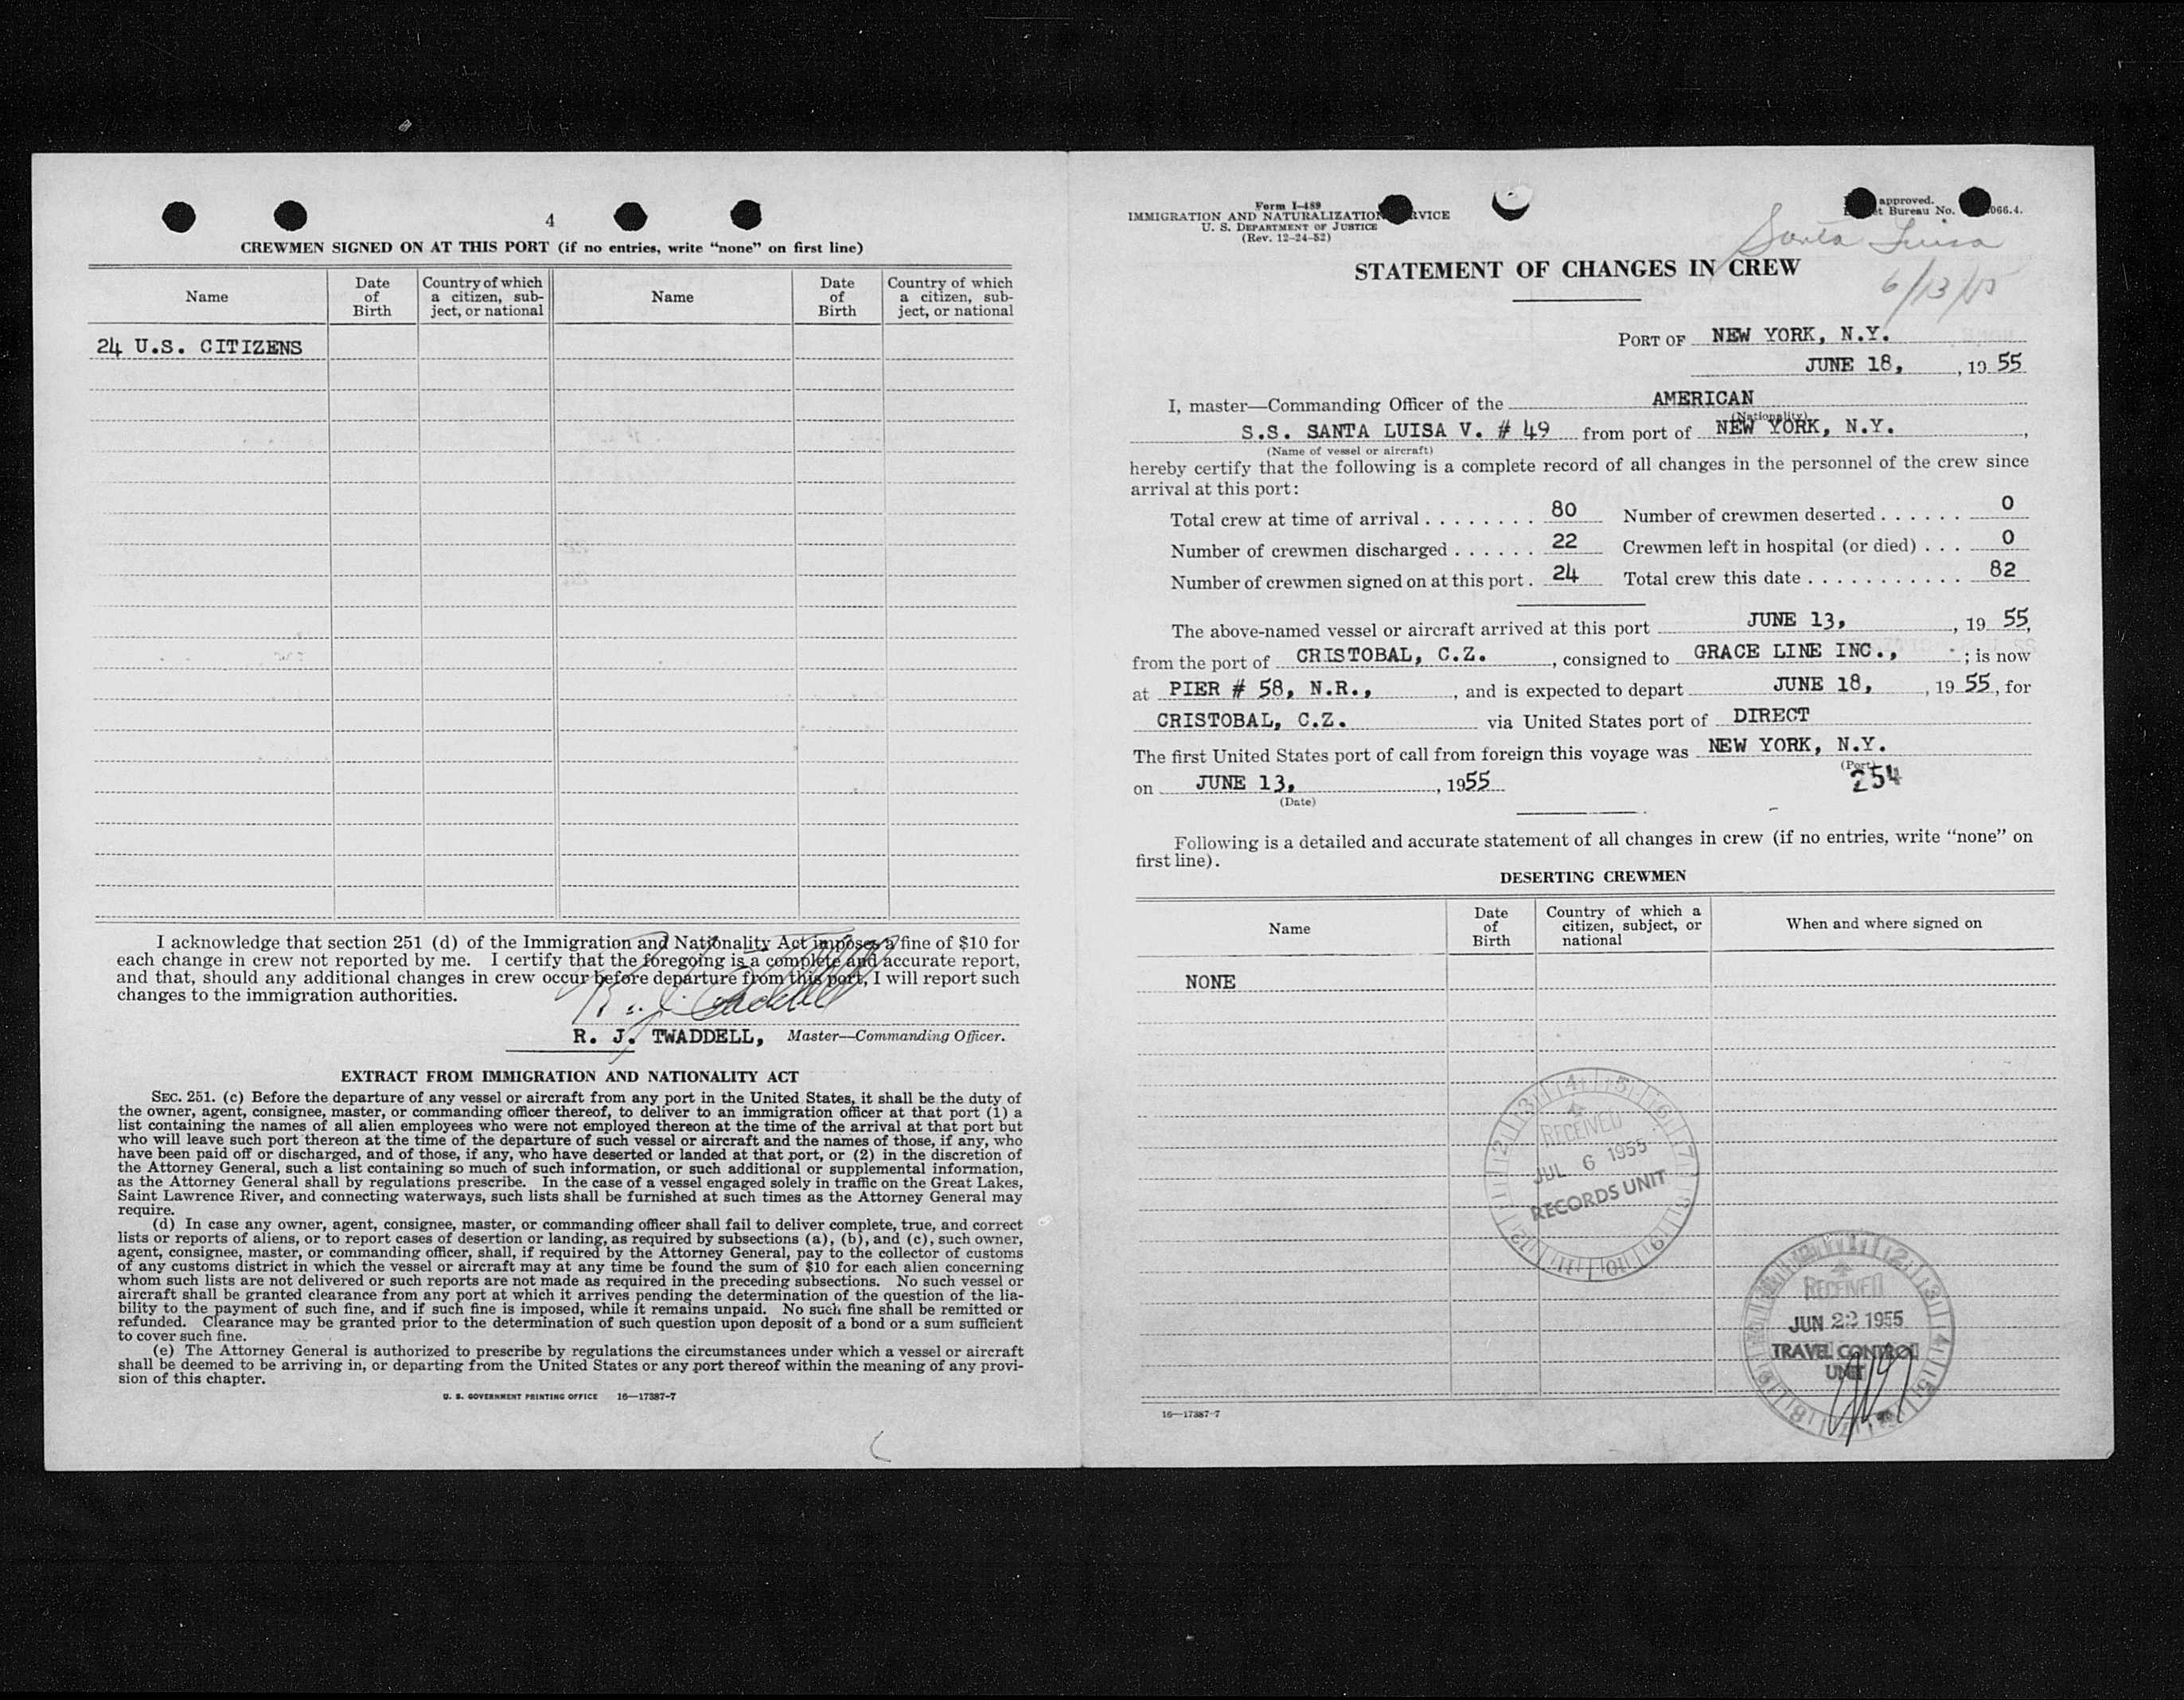 4
CREWMEN SIGNED ON AT THIS PORT (if no entries, write “none” on first line)
Name
Date
of
Birth
Country of which
a citizen, sub-
ject, or national
Name
Date
of
Birth
Country of which
a citizen, sub-
ject, or national
24 U.S. CITIZENS
I acknowledge that section 251 (d) of the Immigration and Nationality Act imposes a fine of $10 for
each change in crew not reported by me. I certify that the foregoing is a complete and accurate report,
and that, should any additional changes in crew occur before departure from this port, I will report such
changes to the immigration authorities.
R. J. Twaddell
R. J. TWADDELL, Master—Commanding Officer.
EXTRACT FROM IMMIGRATION AND NATIONALITY ACT
SEC. 251. (c) Before the departure of any vessel or aircraft from any port in the United States, it shall be the duty of
the owner, agent, consignee, master, or commanding officer thereof, to deliver to an immigration officer at that port (1) a
list containing the names of all alien employees who were not employed thereon at the time of the arrival at that port but
who will leave such port thereon at the time of the departure of such vessel or aircraft and the names of those, if any, who
have been paid off or discharged, and of those, if any, who have deserted or landed at that port, or (2) in the discretion of
the Attorney General, such a list containing so much of such information, or such additional or supplemental information,
as the Attorney General shall by regulations prescribe. In the case of a vessel engaged solely in traffic on the Great Lakes,
Saint Lawrence River, and connecting waterways, such lists shall be furnished at such times as the Attorney General may
require.
(d) In case any owner, agent, consignee, master, or commanding officer shall fail to deliver complete, true, and correct
lists or reports of aliens, or to report cases of desertion or landing, as required by subsections (a), (b), and (c), such owner,
agent, consignee, master, or commanding officer, shall, if required by the Attorney General, pay to the collector of customs
of any customs district in which the vessel or aircraft may at any time be found the sum of $10 for each alien concerning
whom such lists are not delivered or such reports are not made as required in the preceding subsections. No such vessel or
aircraft shall be granted clearance from any port at which it arrives pending the determination of the question of the lia-
bility to the payment of such fine, and if such fine is imposed, while it remains unpaid. No such fine shall be remitted or
refunded. Clearance may be granted prior to the determination of such question upon deposit of a bond or a sum sufficient
to cover such fine.
(e) The Attorney General is authorized to prescribe by regulations the circumstances under which a vessel or aircraft
shall be deemed to be arriving in, or departing from the United States or any port thereof within the meaning of any provi-
sion of this chapter.
U. S. GOVERNMENT PRINTING OFFICE 16—17387-7
Form I-489
IMMIGRATION AND NATURALIZATION SERVICE
U. S. DEPARTMENT OF JUSTICE
(Rev. 12-24-52)
approved.
Bureau No. 066.4.
Santa Luisa
6/13/55
STATEMENT OF CHANGES IN CREW
PORT OF NEW YORK, N.Y.
JUNE 18, , 19 55
I, master—Commanding Officer of the AMERICAN
(Nationality)
S.S. SANTA LUISA V. # 49 from port of NEW YORK, N.Y. ,
(Name of vessel or aircraft)
hereby certify that the following is a complete record of all changes in the personnel of the crew since
arrival at this port:
Total crew at time of arrival . . . . . . . . 80 Number of crewmen deserted . . . . . . 0
Number of crewmen discharged . . . . . . 22 Crewmen left in hospital (or died) . . . 0
Number of crewmen signed on at this port . 24 Total crew this date . . . . . . . . . . . 82
The above-named vessel or aircraft arrived at this port JUNE 13, , 19 55,
from the port of CRISTOBAL, C.Z. , consigned to GRACE LINE INC., ; is now
at PIER # 58, N.R., , and is expected to depart JUNE 18, , 19 55, for
CRISTOBAL, C.Z. via United States port of DIRECT
The first United States port of call from foreign this voyage was NEW YORK, N.Y.
(Port)
on JUNE 13, , 1955
(Date)
254
Following is a detailed and accurate statement of all changes in crew (if no entries, write “none” on
first line).
DESERTING CREWMEN
Name
Date
of
Birth
Country of which a
citizen, subject, or
national
When and where signed on
NONE
RECEIVED
JUL 6 1955
RECORDS UNIT
RECEIVED
JUN 22 1955
TRAVEL CONTROL
UNIT
16—17387-7